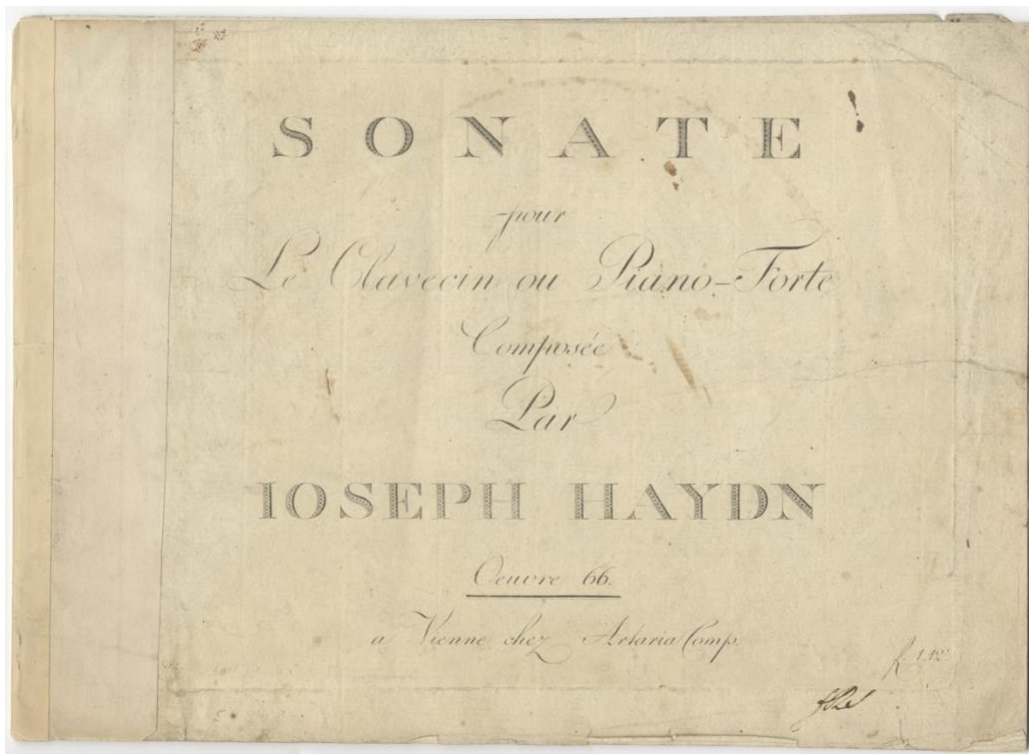 SONATE
pour
Le Clavecin ou Piano-Forte
Composée
Par
IOSEPH HAYDN
Oeuvre 66.
a Vienne chez Artaria Comp.
f. 1.12